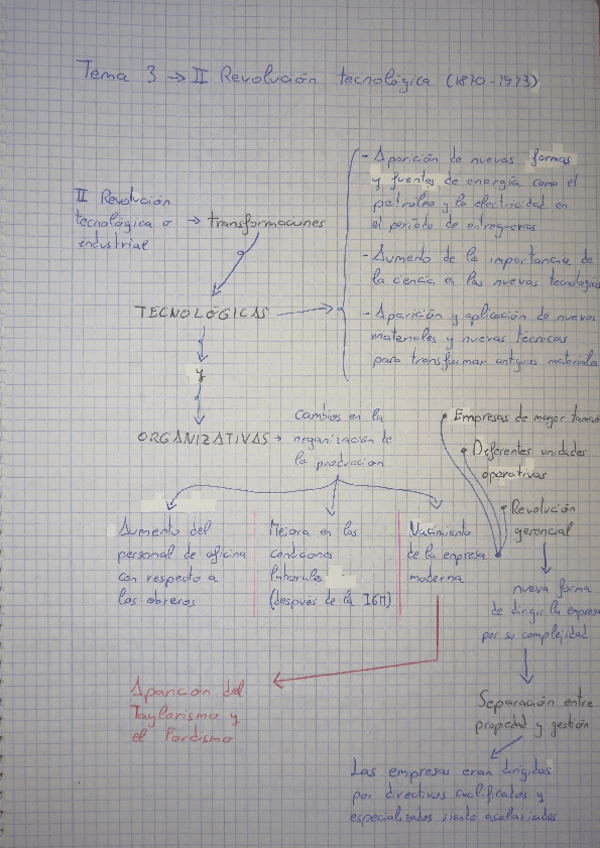 Tema 3 → II Revolución tecnológica (1870-1973)
II Revolución
tecnológica o → transformaciones
industrial
- Aparición de nuevas formas
y fuentes de energía como el
petróleo y la electricidad en
el periodo de entreguerras
- Aumento de la importancia de
la ciencia en las nuevas tecnologías
- Aparición y aplicación de nuevos
materiales y nuevas técnicas
para transformar antiguos materiales
TECNOLÓGICAS
y
ORGANIZATIVAS →
Cambios en la
organización de
la producción
Empresas de mayor
Diferentes unidades
operativas
Revolución
gerencial
Aumento del
personal de oficina
con respecto a
los obreros
Mejora en las
condiciones
laborales
(después de la IGM)
Nacimiento
de la empresa
moderna
nueva forma
de dirigir la empresa
por su complejidad
Separación entre
propiedad y gestión
Las empresas eran dirigidas
por directivos cualificados y
especializados siendo asalariados
Aparición del
Taylorismo y
el Fordismo